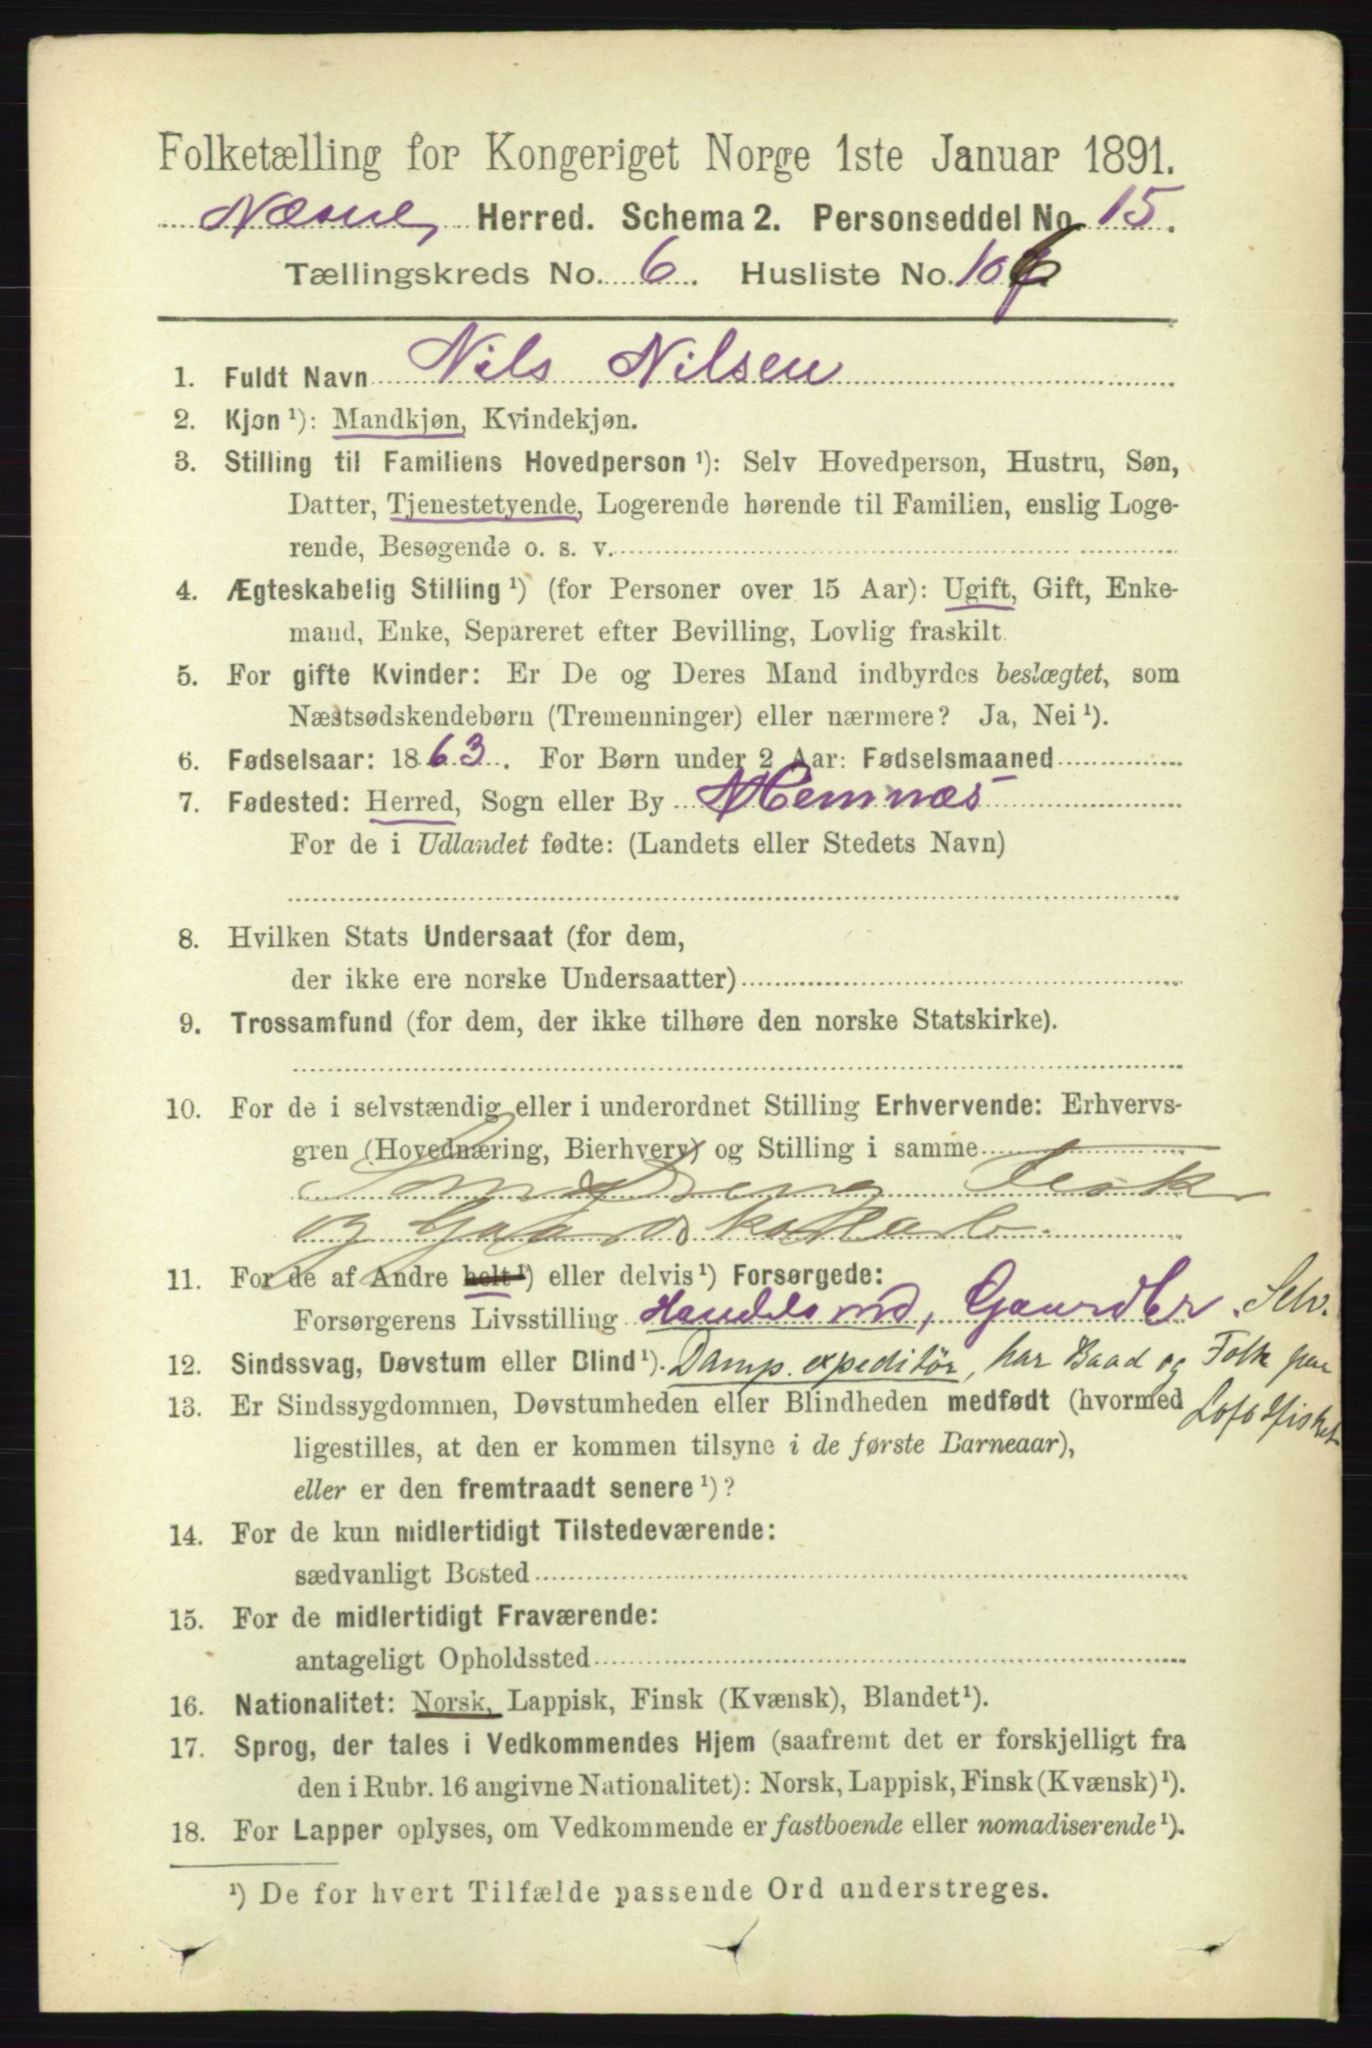 Folketælling for Kongeriget Norge 1ste Januar 1891.
Næsne, Herred. Schema 2. Personseddel No. 15.
Tællingskreds No. 6. Husliste No. 106
1. Fuldt Navn Nils Nilsen
2. Kjøn ¹): Mandkjøn, Kvindekjøn.
3. Stilling til Familiens Hovedperson ¹): Selv Hovedperson, Hustru, Søn,
Datter, Tjenestetyende, Logerende hørende til Familien, enslig Loge-
rende, Besøgende o. s. v.
4. Ægteskabelig Stilling ¹) (for Personer over 15 Aar): Ugift, Gift, Enke-
mand, Enke, Separeret efter Bevilling, Lovlig fraskilt.
5. For gifte Kvinder: Er De og Deres Mand indbyrdes beslægtet, som
Næstsødskendebørn (Tremenninger) eller nærmere? Ja, Nei ¹).
6. Fødselsaar: 1863. For Børn under 2 Aar: Fødselsmaaned
7. Fødested: Herred, Sogn eller By Hemnæs
For de i Udlandet fødte: (Landets eller Stedets Navn)
8. Hvilken Stats Undersaat (for dem,
der ikke ere norske Undersaatter)
9. Trossamfund (for dem, der ikke tilhøre den norske Statskirke).
10. For de i selvstændig eller i underordnet Stilling Erhvervende: Erhvervs-
gren (Hovednæring, Bierhverv) og Stilling i samme
Fisk
og Gaards
11. For de af Andre helt ¹) eller delvis ¹) Forsørgede:
Forsørgerens Livsstilling Handelsmd, Gaardbr. Selv.
12. Sindssvag, Døvstum eller Blind ¹). Damp.expeditør, har Baad og Folk paa
13. Er Sindssygdommen, Døvstumheden eller Blindheden medfødt (hvormed Lofotfisket
ligestilles, at den er kommen tilsyne i de første Barneaar),
eller er den fremtraadt senere ¹)?
14. For de kun midlertidigt Tilstedeværende:
sædvanligt Bosted
15. For de midlertidigt Fraværende:
antageligt Opholdssted
16. Nationalitet: Norsk, Lappisk, Finsk (Kvænsk), Blandet ¹).
17. Sprog, der tales i Vedkommendes Hjem (saafremt det er forskjelligt fra
den i Rubr. 16 angivne Nationalitet): Norsk, Lappisk, Finsk (Kvænsk) ¹).
18. For Lapper oplyses, om Vedkommende er fastboende eller nomadiserende ¹).
¹) De for hvert Tilfælde passende Ord understreges.